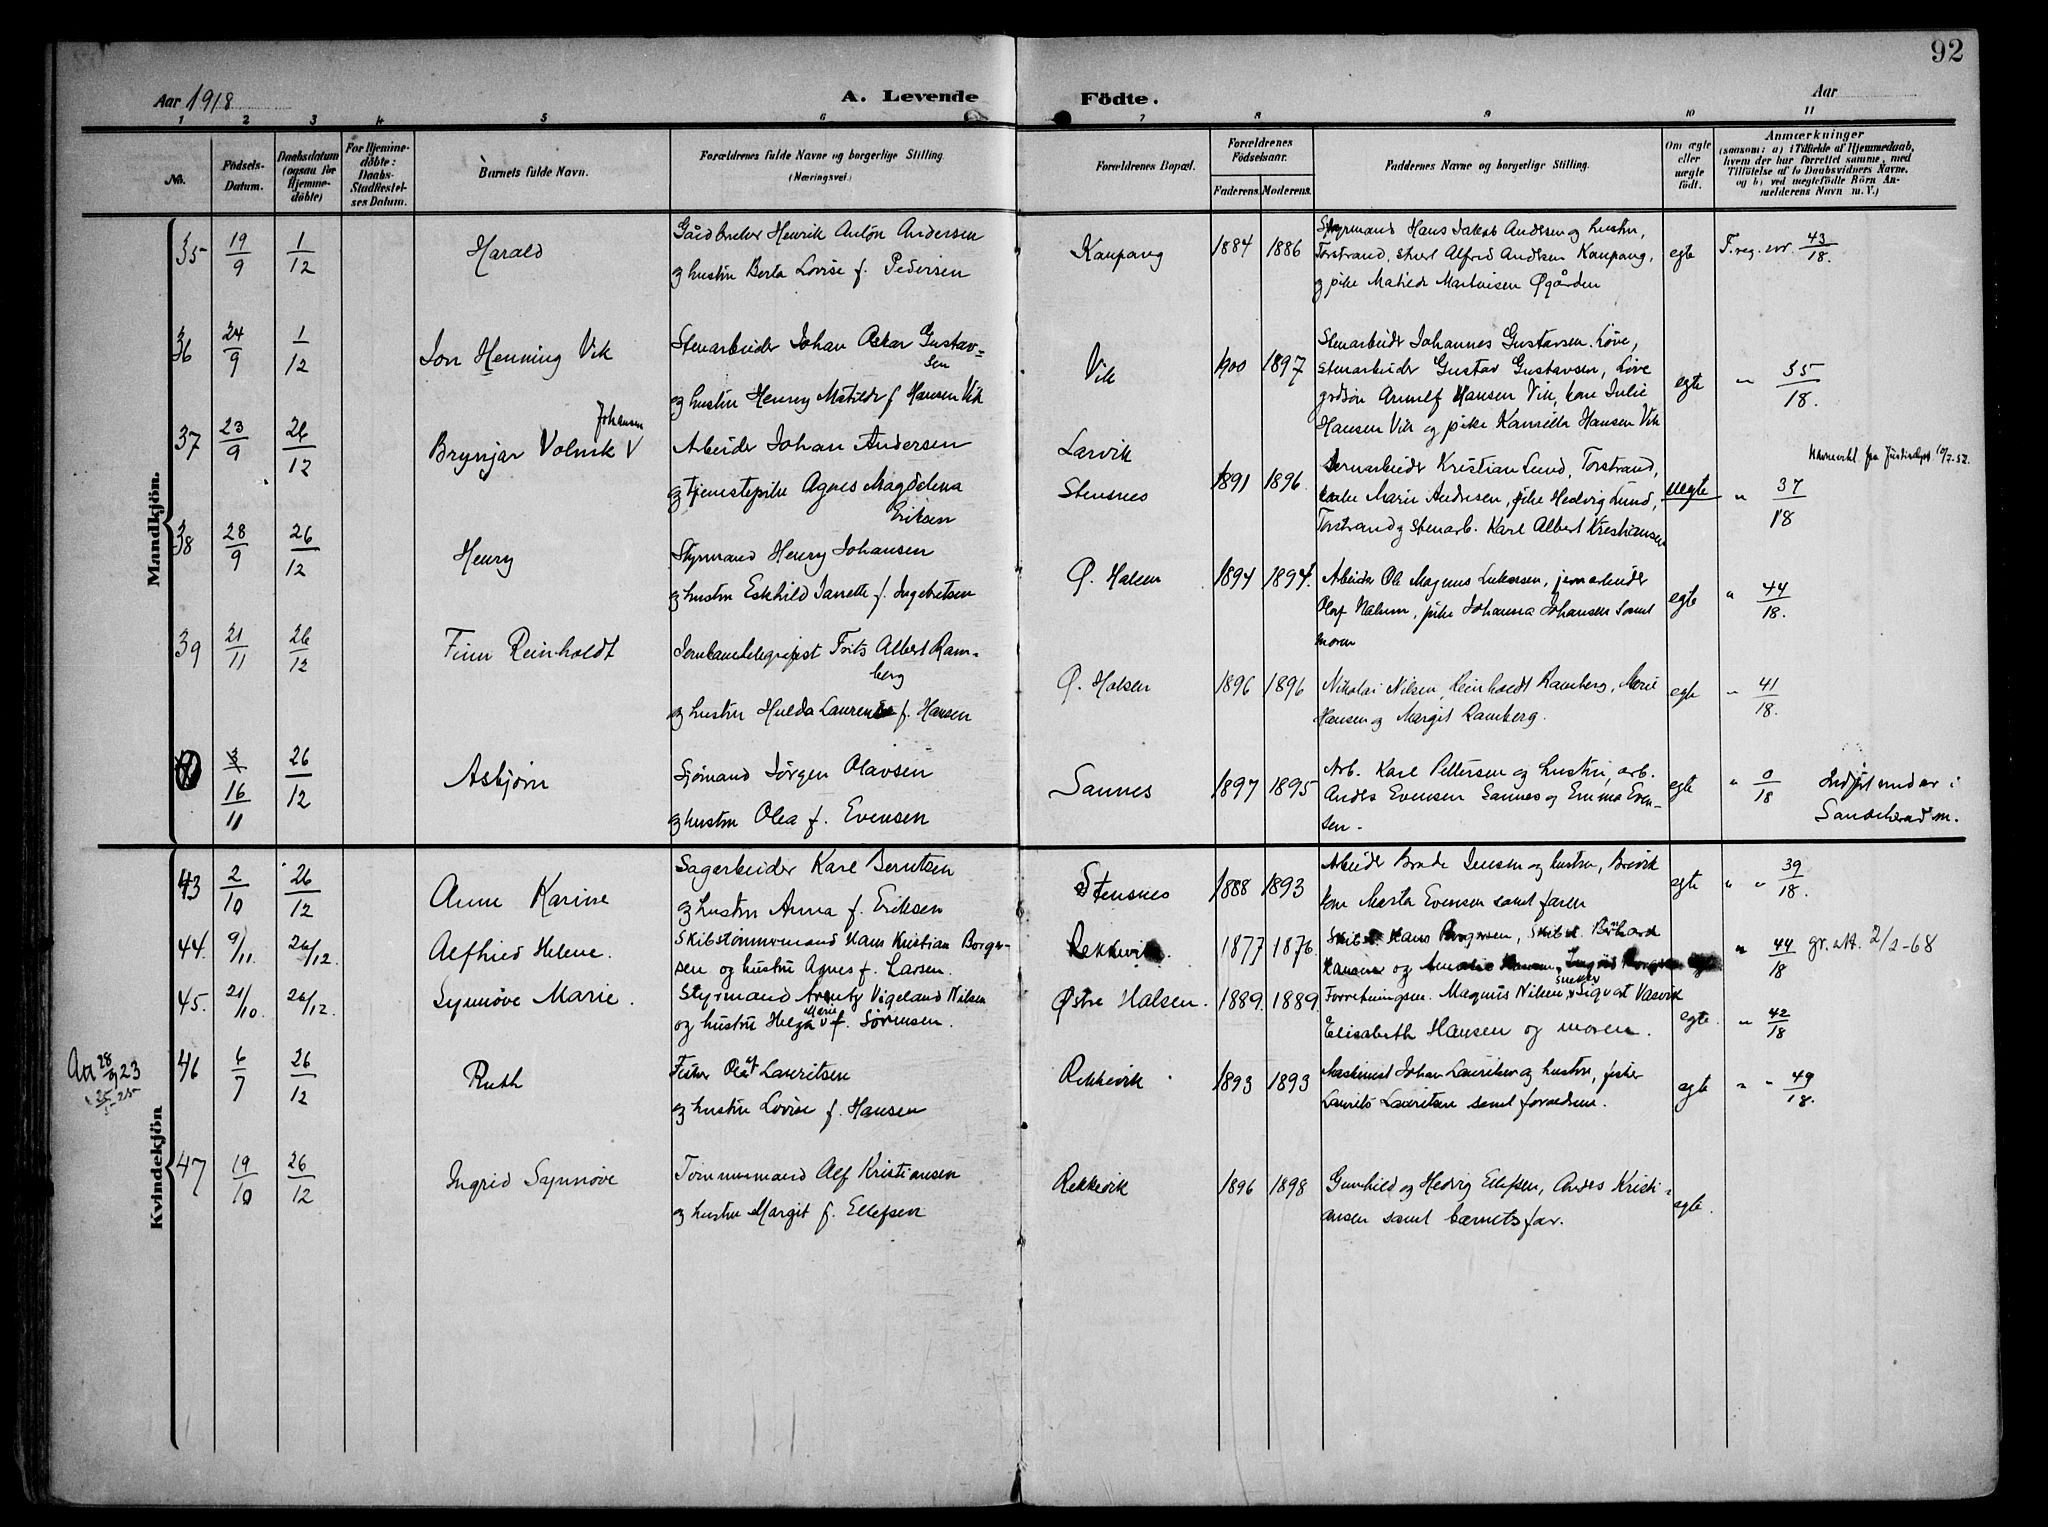 92
Aar 1918
A. Levende
Födte.
Aar
1 2 3 4 5 6 7 8 9 10 11
No.
Födsels-
Datum.
Daabsdatum
(ogsaa for
Hjemme-
döbte)
For Hjemme-
döbte:
Daabs-
Stadfæstel-
ses Datum.
Barnets fulde Navn.
Forældrenes fulde Navne og borgerlige Stilling
(Næringsvei.)
Forældrenes Bopæl.
Forældrenes
Födselsaar.
Faderens. Moderens.
Faddernes Navne og borgerlige Stilling.
Om ægte
eller
uægte
født.
Anmærkninger
(saasom: a) i Tilfælde af Hjemmedaab,
hvem der har forrettet samme, med
Tilföielse af to Daabsvidners Navne,
og b) ved uægtefödte Börn An-
melderens Navn m. V.)
Mandkjön.
35 19/9 1/12 Harald
Gårdbruker Henrik Anton Andersen
og hustru Berta Lovise f. Pedersen
Kaupang 1884 1886
Styrmand Hans Jakob Andersen og hustru,
Torstrand, Alfred Andersen Kaupang,
og pike Matilde Martinsen Øgården
egte F. reg. nr. 43/18.
36 24/9 1/12 Jon Henning Vik
Stenarbeider Johan Oskar Gustav=
sen
og hustru Henny Matilde f Hansen Vik
Vik 1900 1897
Stenarbeider Johannes Gustavsen, Løve,
stenarbeider Gustav Gustavsen, Løve
Hansen Vik, kone Julie
Hansen Vik og pike Hansen Vik
egte " 35/18.
37 23/9 26/12 Brynjar Volmik V
Johansen
Arbeider Johan Andersen
og tjenestepike Agnes Magdelena
Eriksen
Larvik
Stensnes 1891 1896
Stenarbeider Kristian Lund, Torstrand,
Marie Andresen, pike Hedvig Lund,
Torstrand og stenarb. Karl Albert Kristiansen
uegte " 37/18
38 28/9 26/12 Henry
Styrmand Henry Johansen
og hustru Eskhild Janette f. Ingebretsen
Ø. Halsen 1894 1894.
Arbeider Ole Magnus, jernarbeider
Olaf, pike Johanna Johansen samt
moren
egte " 44/18.
39 21/11 26/12 Finn Reinholdt
Jernbanetelegrafist Frits Albert Ram-
berg
og hustru Hulda f. Hansen
Ø. Halsen 1896 1896
Nikolai Nilsen, Reinholdt Ramberg, Marie
Hansen og Margit Ramberg.
egte " 41/18.
3/ 16/11 26/12 Asbjørn
Sjømand Jørgen Olavsen
og hustru Olea f. Evensen
Sannes 1897 1895
Arb. Karl Pettersen og hustru, arb.
Anders Evensen Sannes og Emma Even-
sen.
egte " 0/18
Sandeherad m.
Kvindekjön
43 2/10 26/12 Anne Karine
Sagarbeider Karl Berntsen
og hustru Anna f. Eriksen
Stensnes 1888 1893
Arbeider Jensen og hustru, Brevik
kone Marta Evensen samt faren
egte " " 39/18.
44. 9/11. 26/12. Alfhild Helene.
Skibstømmermand Hans Kristian Borger-
sen og hustru Agnes f. Larsen.
Rekkevik. 1877 1876
Hans Borgersen,
Hansen og
" 44/18 2/2-68
45. 21/10. 26/12. Synnøve Marie.
Styrmand Arentz Vigeland Nilsen
Marie
og hustru Helga v f. Sørensen.
Østre Halsen. 1889. 1889.
Forretningsm. Magnus Nilsen, Sigvart Vasvik
Elisabeth Hansen og moren.
egte. " 42/18
28/9 23
46 6/7 26/12 Ruth
Fisker Olaf Lauritsen
og hustru Lovise f. Hansen
Rekkevik 1893 1893
Maskinist Johan Lauritsen og hustru, fisker
Laurits Lauritsen samt forældrene.
egte " " 49/18.
47 19/10 26/12 Ingrid Synnøve
Tømmermand Alf Kristiansen
og hustru Margit f. Ellefsen
Rekkevik 1896 1898
Gunhild og Hedvig Ellefsen, Anders Kristi-
ansen samt barnets far.
egte.